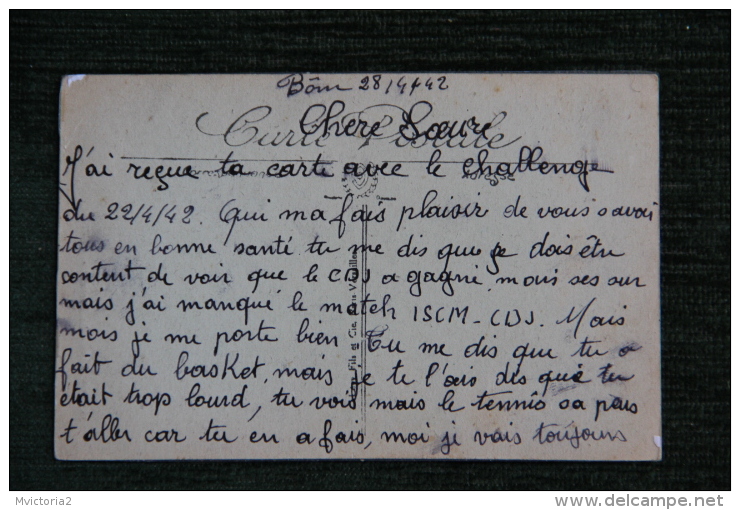 Bôm 28/4/42
Carte Postale
Chere Soeure
J'ai reçue ta carte avec le challenge
ADRESSE
du 22/4/42. Qui ma fais plaisir de vous savoir
tous en bonne santé. tu me dis que je dois être
content de voir que le CDJ a gagné, mais ses sur
mais j'ai manqué le match ISCM-CDJ. Mais
mois je me porte bien. Tu me dis que tu a
fait du basket, mais je te l'ais dis que tu
était trop lourd, tu vois mais le tennis sa peus
t'aller car tu en a fais, moi je vais toujours
Fils et Cie
Mvictoria2
delcampe.net